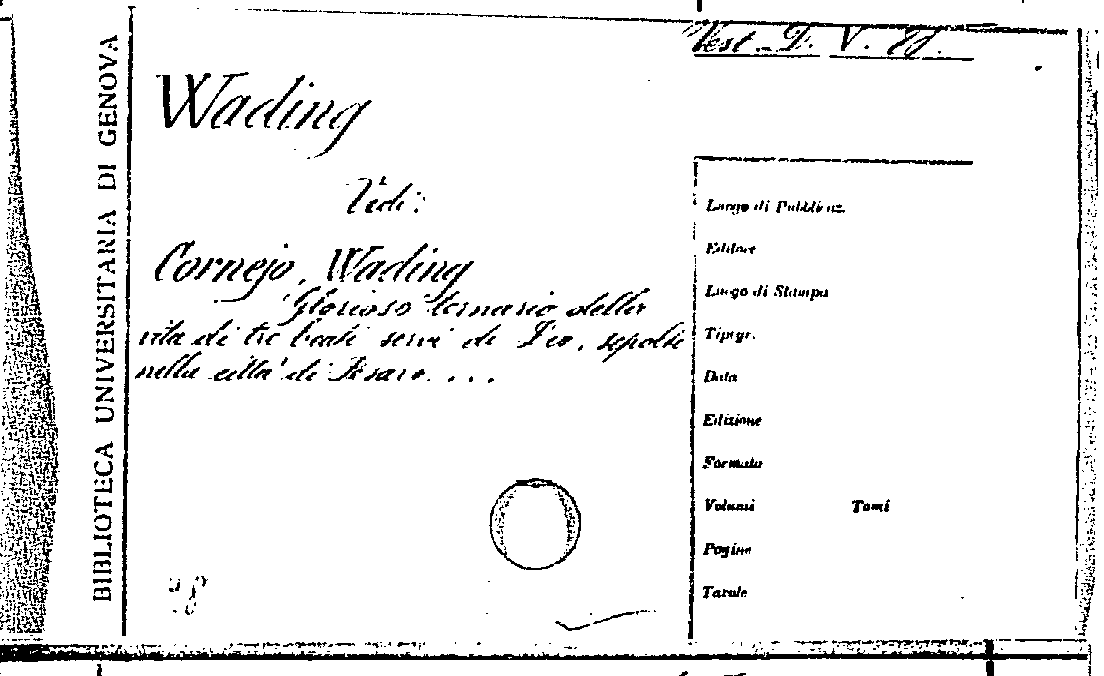 BIBLIOTECA UNIVERSITARIA DI GENOVA
Vest. D. V.
Wading
Vedi:
Cornejo, Wading
Glorioso ternario della
vita di tre beati servi di Dio, sepolti
nella città di Pesaro....
Luogo di Pubblicaz.
Editore
Luogo di Stampa
Tipogr.
Data
Edizione
Formato
Volumi Tomi
Pagine
Tavole